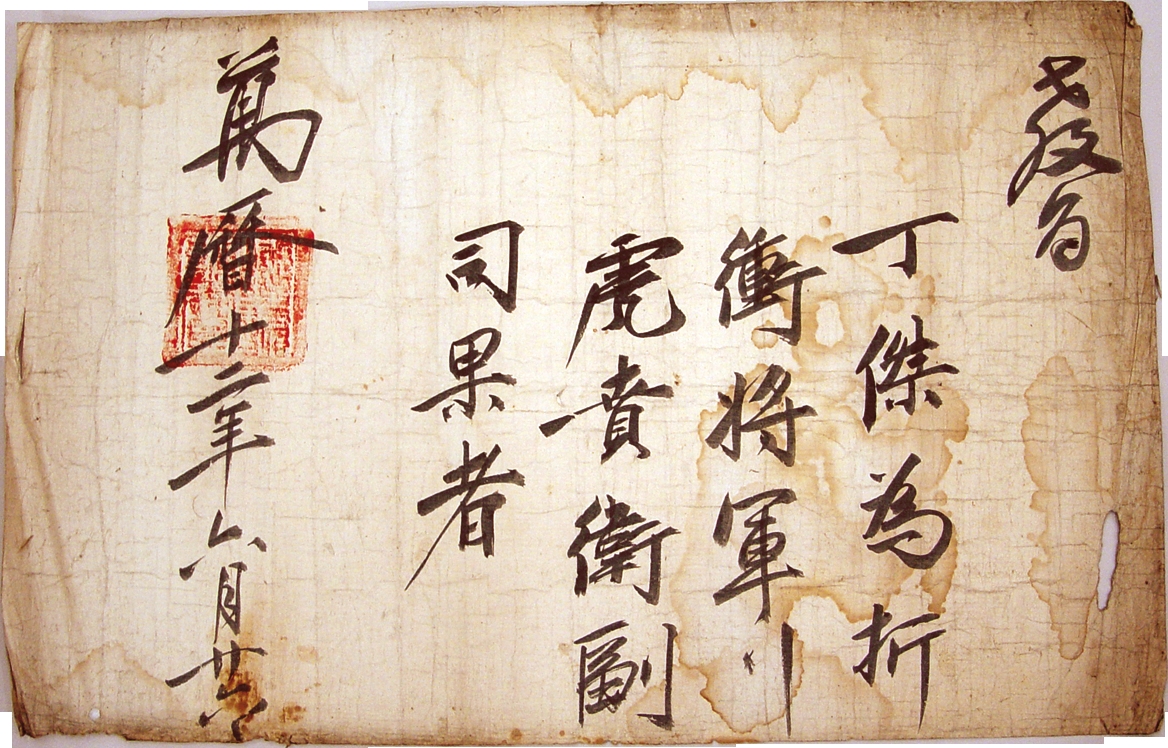 敎旨
丁傑為折
衝將軍行
虎賁衛副
司果者
萬曆十二年六月廿六